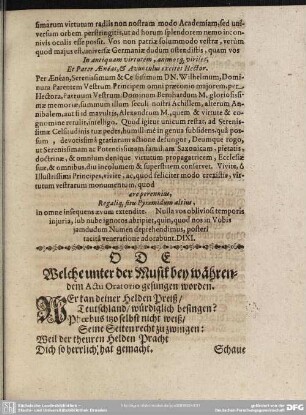 simarum virtutum radiis non nostram modo Academiam, sed uni-
versum orbem perstringitis, ut ad horum splendorem nemo in co-
nivis oculis esse possit. Vos non patria solummodo vestra, verùm
quod majus est, universæ Germaniæ dudum ostendistis, quam vos
In antiquam virtutem, animosque viriles,
Et Pater Æneas, & Avunculus excitet Hector.
Per Ænean, Serenissimum & Celsissimum DN. Wilhelmum, Domi-
num Parentem Vestrum Principem omni præconio majorem, per
Hectora, Patruum Vestrum Dominum Bernhardum
memoriæ, summum illum seculi nostri Achillem, alterum An-
nibalem, aut si id mavultis, Alexandrum M. quem & virtute & co-
gnomine
Quod igitur unicum restat, ad Serenissi-
mæ Celsitudinis tuæ pedes, humili me in genus subsidens, quâ pos-
sum, devotissimâ gratiarum actione defungor, Deumque rogo,
ut Serenissimam ac Potentissimam familiam Saxonicam, pietatis,
doctrinæ, & omnium denique virtutum propagatricem, Ecclesiæ
& omnibus, diu incolumem & superstitem conservet. Vivite, ô
Illustrissimi Principes, vivite, ac, quod feliciter modò erexistis, vir-
tutum vestrarum monumentum, quod
ære perennius,
Regaliq; situ Pyramidum altius,
in omne insequens ævum extendite. Nulla vos oblivio, temporis
injuria, sub nube ignotos abripiet, quin, quod nos in Vobis
jamdudum Numen deprehendimus, posteri
tacitâ veneratione adorabunt. DIXI.
ODE
Welche unter der Musik bey währen-
dem Actu Oratorio gesungen worden.
WEr kan deiner Helden Preiß/
Teutschland/ würdiglich besingen?
Phœbus itzo selbst nicht weiß/
Seine Seiten recht zu zwingen:
Weil der theuren Helden Pracht
Dich so herrlich/ hat gemacht.
Schaue